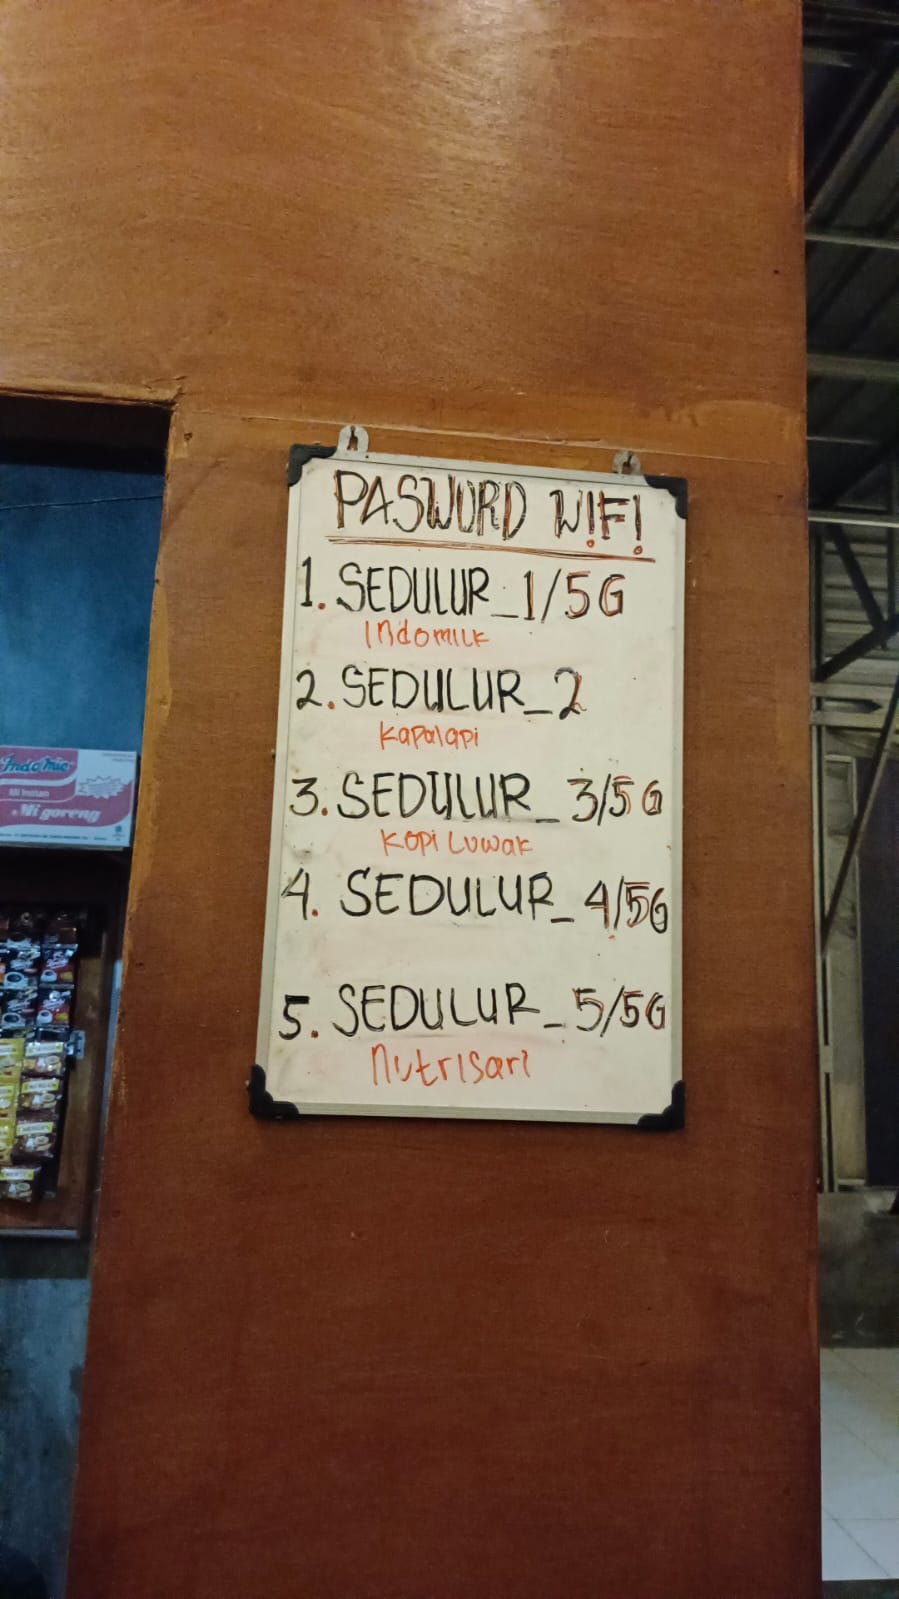 PASWORD WIFI
1. SEDULUR_1/5G
Indomilk
2. SEDULUR_2
Kapalapi
3. SEDULUR_3/5G
Kopi Luwak
4. SEDULUR_4/5G
5. SEDULUR_5/5G
Nutrisari
Indomie
Mi Instan
Mi goreng